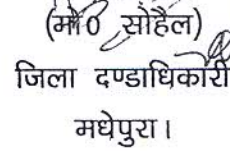 (मो0 सोहैल)
जिला दण्डाधिकारी
मधेपुरा।